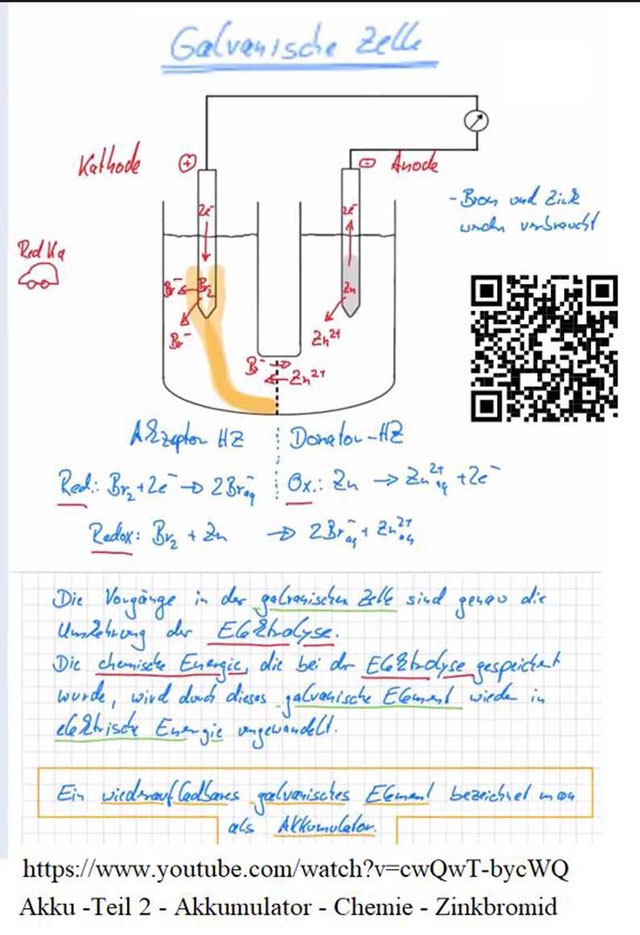 Galvanische Zelle
Kathode ⊕ ⊖ Anode
- Brom und Zink
werden verbraucht
Red Ka
2e⁻ 2e⁻
Br⁻ Br₂ Zn
Br⁻ Zn²⁺
Br⁻ → ← Zn²⁺
Akzeptor HZ Donator-HZ
Red.: Br₂ + 2e⁻ → 2Br⁻aq Ox.: Zn → Zn²⁺aq + 2e⁻
Redox: Br₂ + Zn → 2Br⁻aq + Zn²⁺aq
Die Vorgänge in der galvanischen Zelle sind genau die
Umkehrung der Elektrolyse.
Die chemische Energie, die bei der Elektrolyse gespeichert
wurde, wird durch dieses galvanische Element wieder in
elektrische Energie umgewandelt.
Ein wiederaufladbares galvanisches Element bezeichnet man
als Akkumulator.
https://www.youtube.com/watch?v=cwQwT-bycWQ
Akku -Teil 2 - Akkumulator - Chemie - Zinkbromid